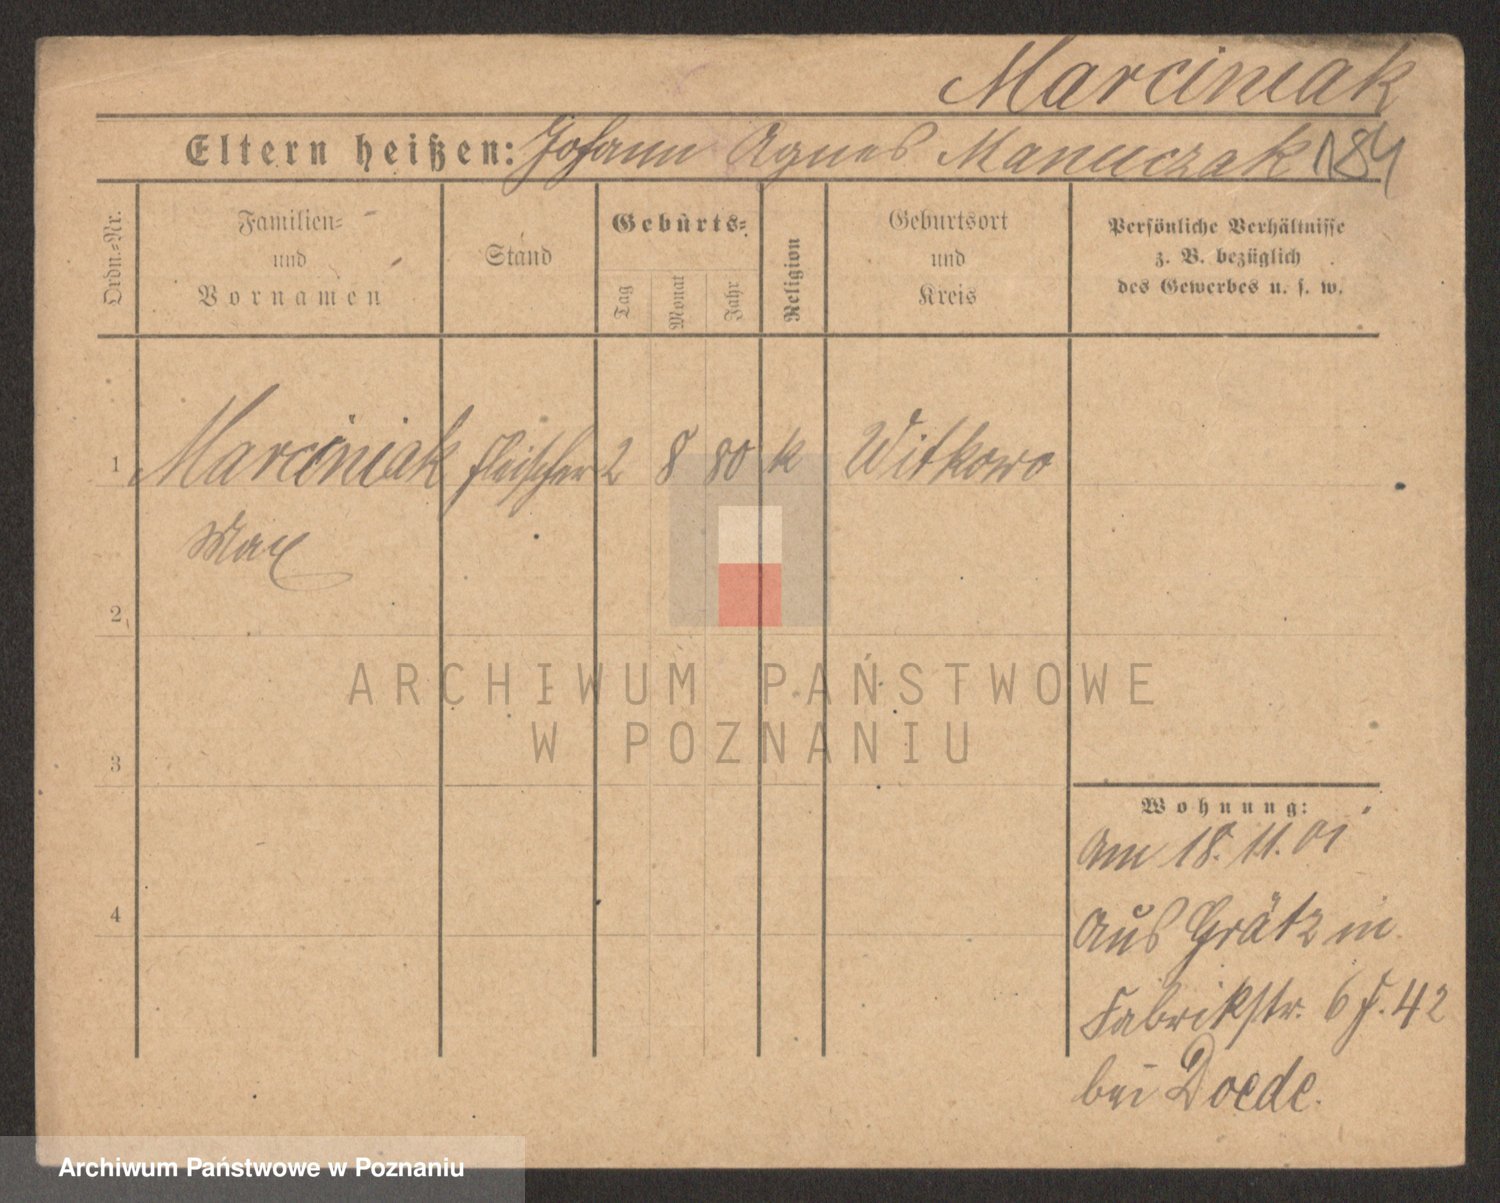 Marciniak
Eltern heißen: Johann Agnes Manuczak 184
Ordn.-Nr.
Familien-
und
Vornamen
Stand
Geburts-
Tag
Monat
Jahr
Religion
Geburtsort
und
Kreis
Persönliche Verhältnisse
z. B. bezüglich
des Gewerbes u. s. w.
1 Marciniak Fleischer 2 8 80 k Witkowo
Max
2
ARCHIWUM PAŃSTWOWE
W POZNANIU
3
Wohnung:
Am 18. 11. 01
4
aus Grätz in
Fabrikstr. 6 42
bei Doede.
Archiwum Państwowe w Poznaniu